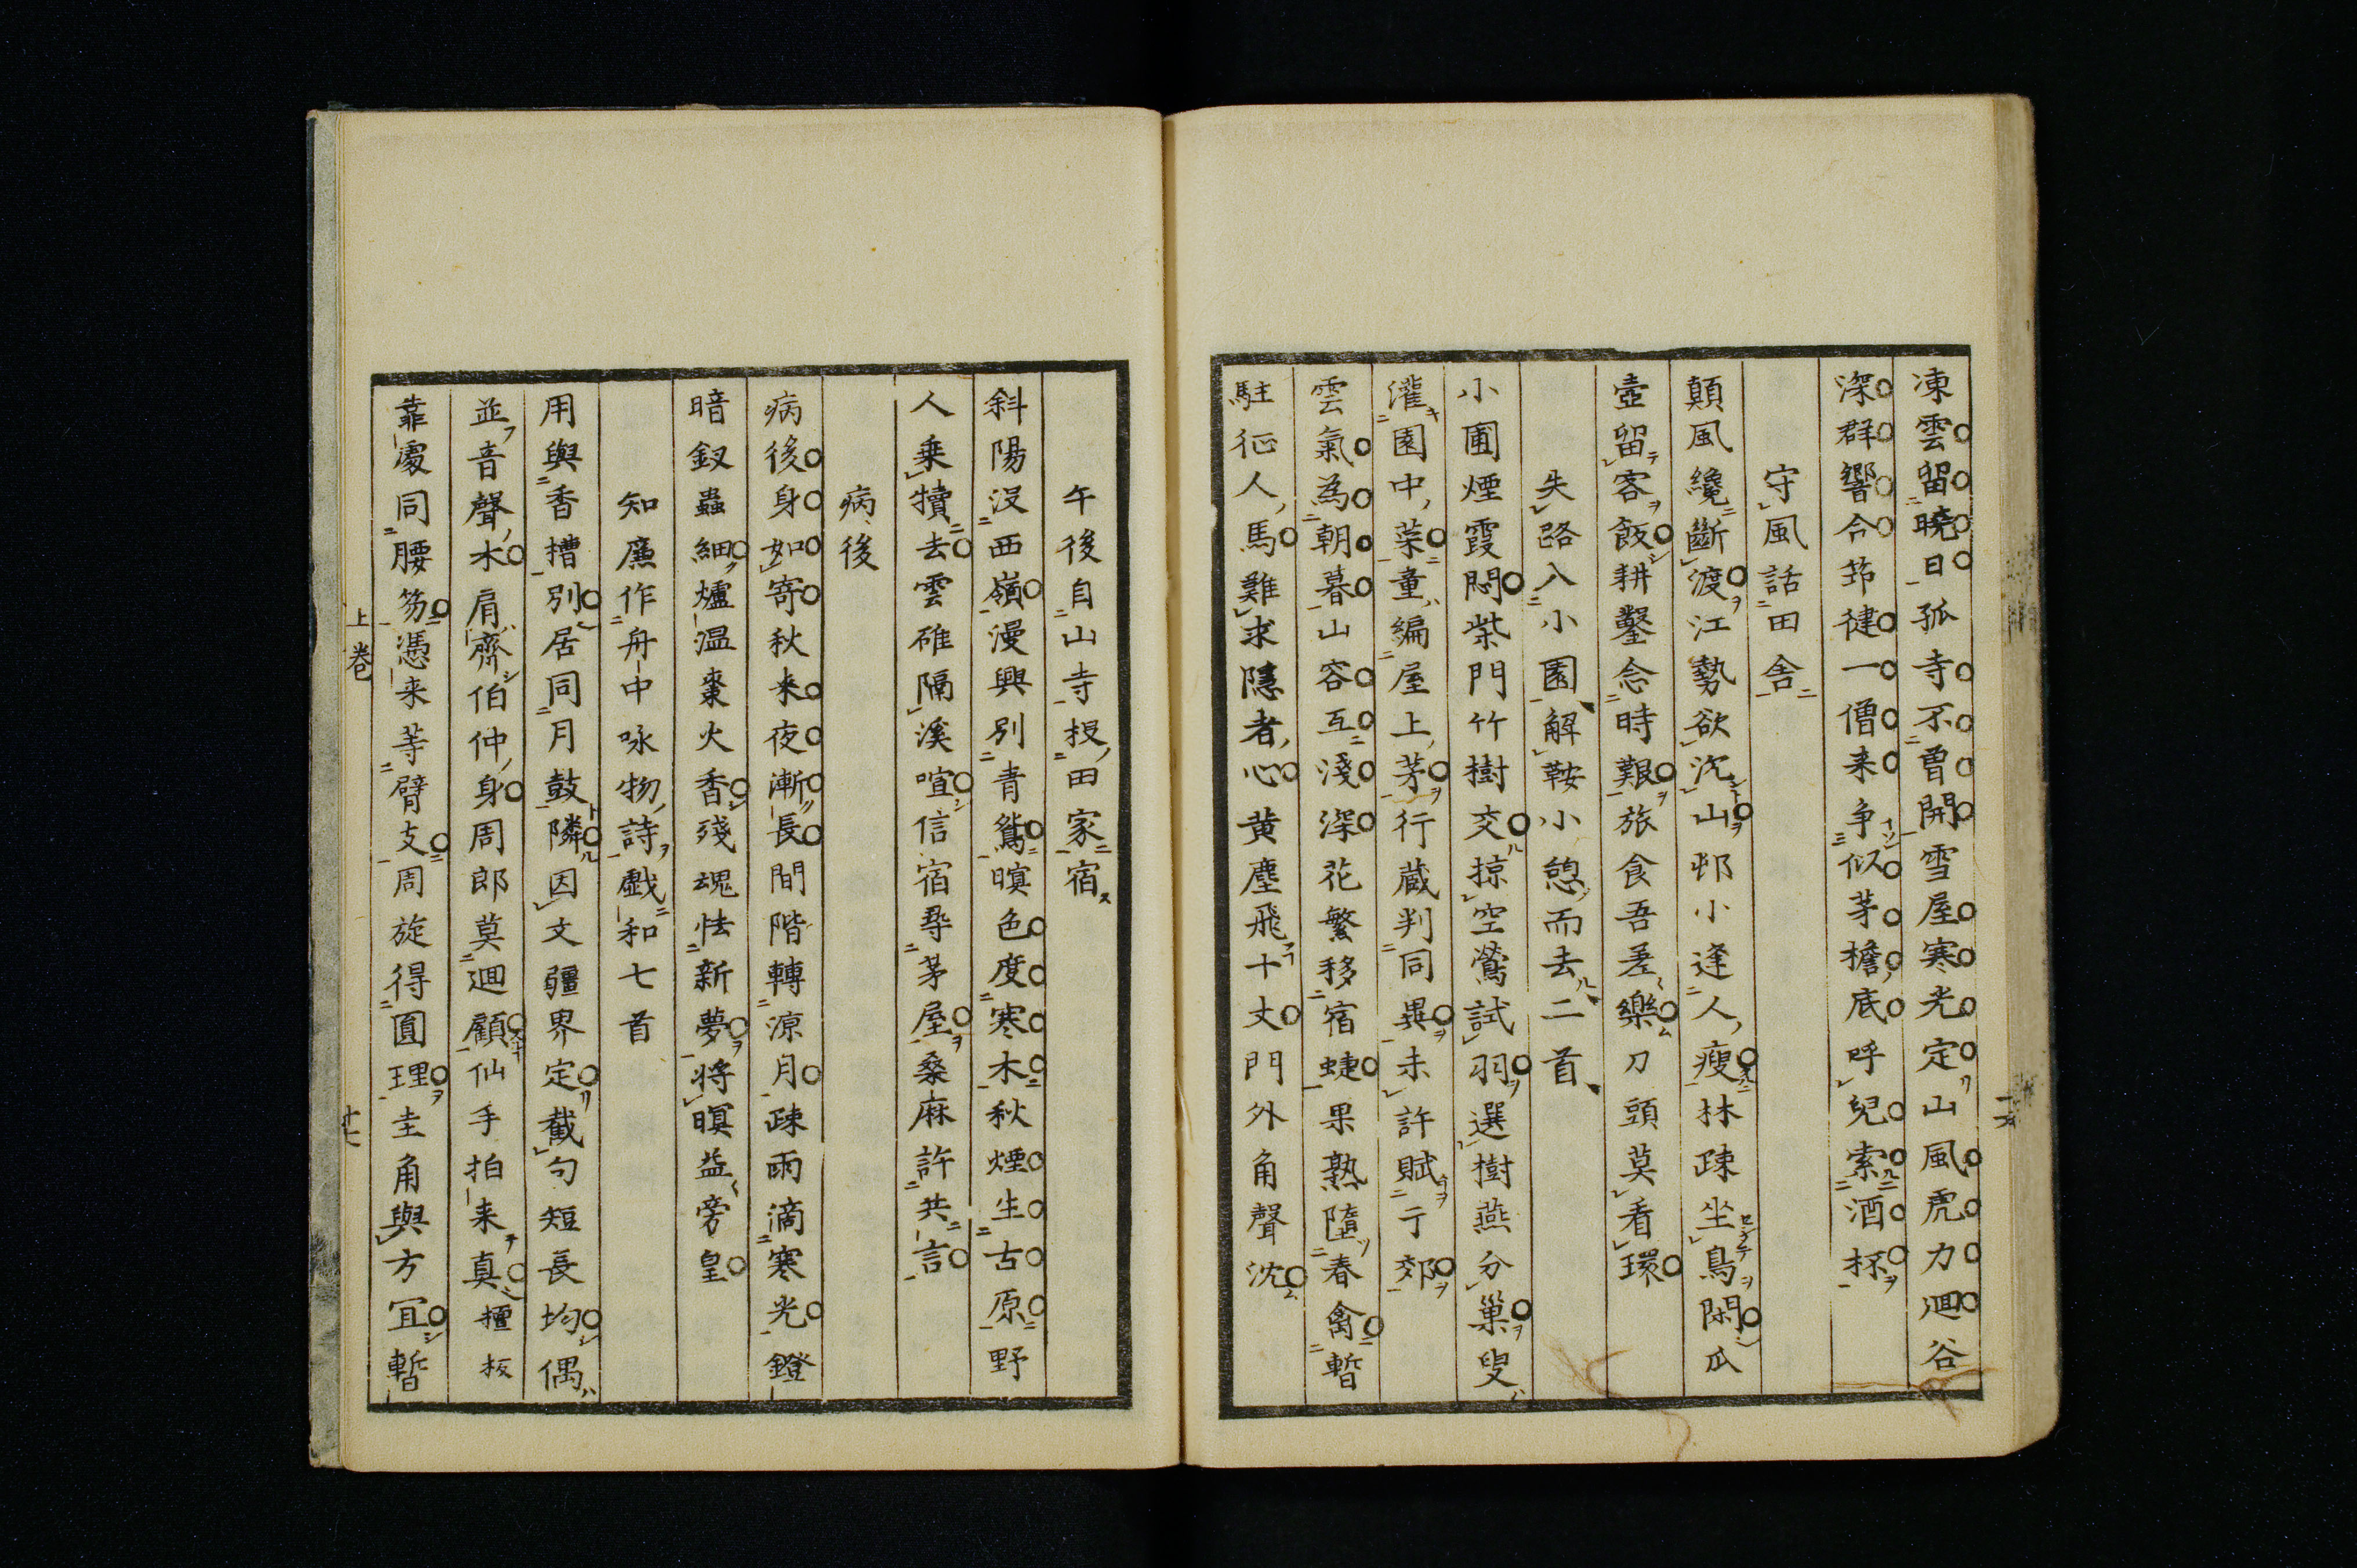 凍雲留曉日孤寺不曽開雪屋寒光定山風虎力廻谷
深群響合筇健一僧来争似茅檐底呼兒索酒杯
守風話田舎
顛風纔斷渡江勢欲沈山邨小逢人瘦林疎坐鳥閑瓜
壺留客飯耕鑿念時艱旅食吾差樂刀頭莫看環
失路入小園解鞍小憩而去二首
小圃煙霞悶柴門竹樹交掠空鶯試羽選樹燕分巢叟
灌園中菜童編屋上茅行蔵判同異未許賦亍郊
雲氣為朝暮山容互淺深花繁移宿蜨果熟墮春禽暫
駐征人馬難求隱者心黄塵飛十丈門外角聲沈
午後自山寺投田家宿
斜陽沒西嶺漫興別青鴛暝色度寒木秋煙生古原野
人乗犢去雲碓隔溪喧信宿尋茅屋桑麻許共言
病後
病後身如寄秋来夜漸長閒階轉凉月疎雨滴寒光鐙
暗釵蟲細爐温棗火香殘魂怯新夢将暝益旁皇
知廉作舟中咏物詩戯和七首
用與香槽別居同月鼓隣因文疆界定截句短長均偶
並音聲木肩齊伯仲身周郎莫廻顧仙手拍来真檀板
靠處同腰笏憑来等臂支周旋得圓理圭角與方宜暫
上卷